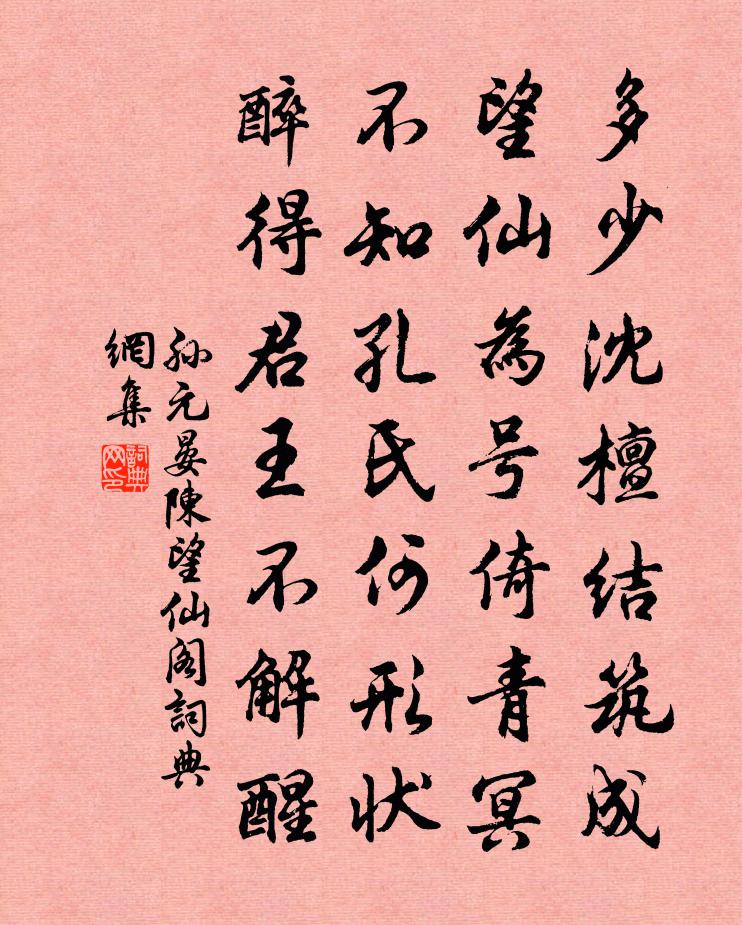 多少沈檀结筑成
望仙為号倚青冥
不知孔氏何形状
醉得君王不解醒
孙元晏陳望仙阁詞典
網集
詞典
网印